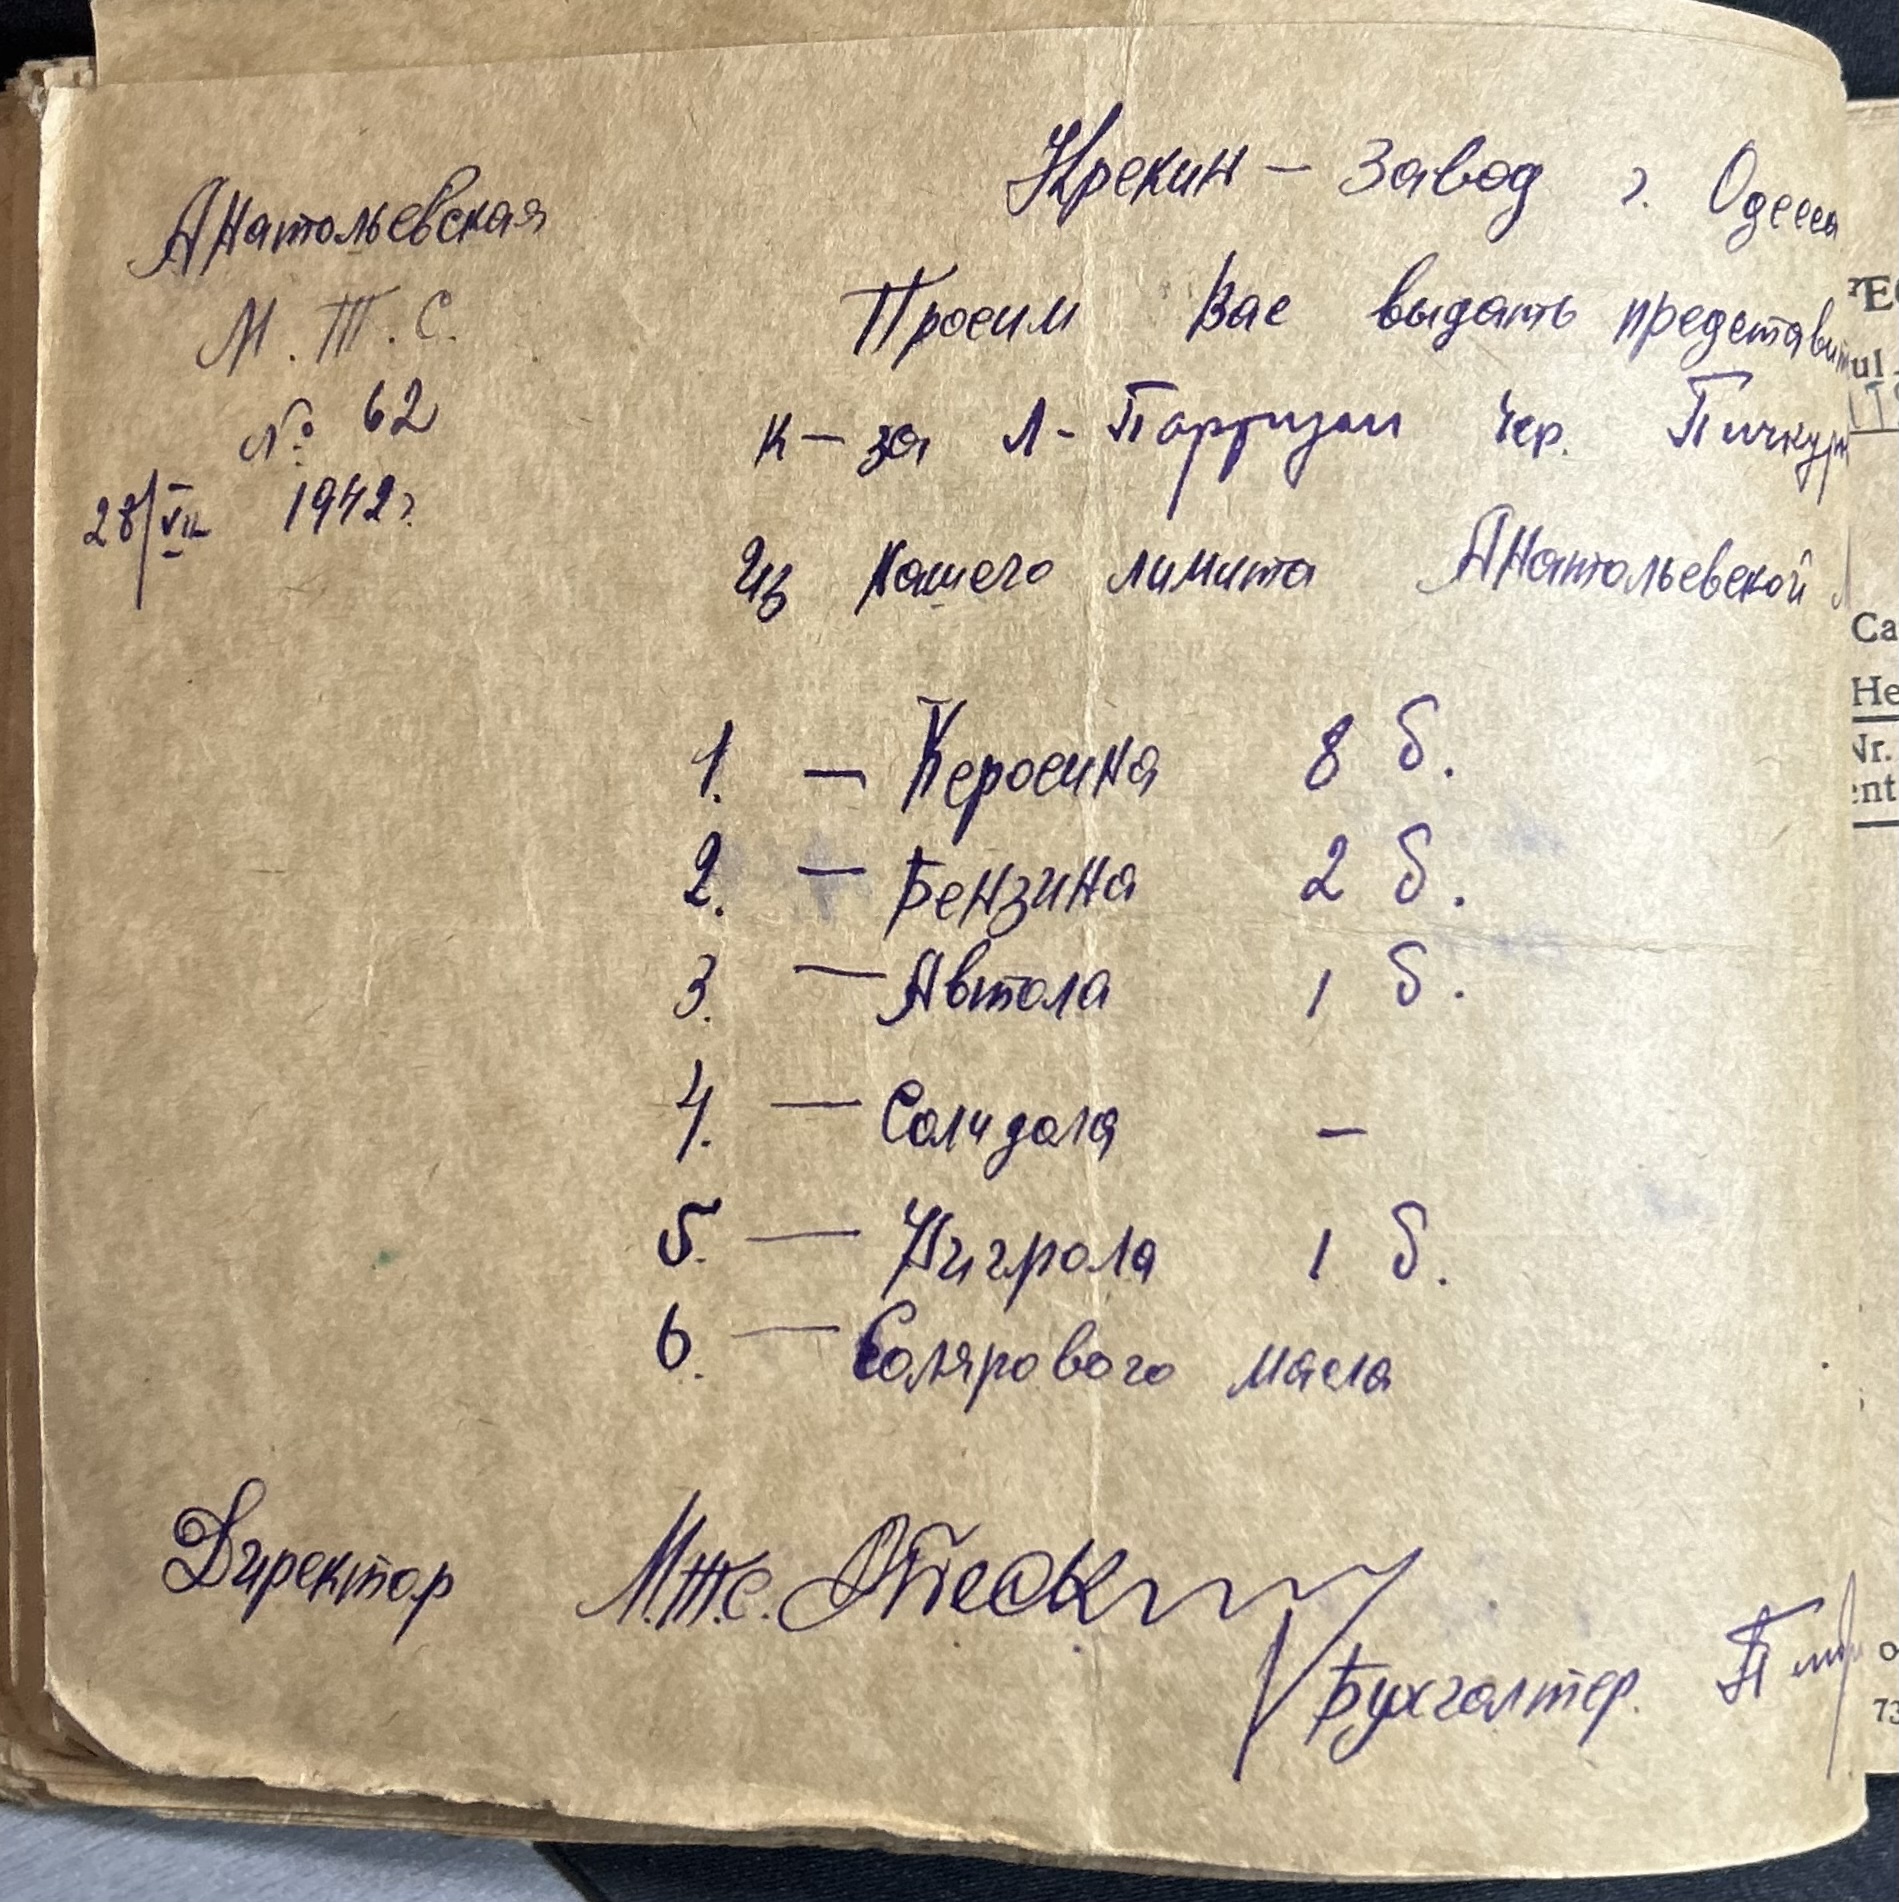 Анатольевская
М. Т. С.
№ 62
28/VII 1942 г.
Крекин – Завод г. Одесса
Просим Вас выдать представит
к-за Л-Партизан Чер. Пичкур
Из Нашего лимита Анатольевской
1. — Керосина 8 б.
2. — Бензина 2 б.
3. — Автола 1 б.
4. — Солидола –
5. — Нигрола 1 б.
6. — Солярового масла
Директор М.Т.С.
Бухгалтер.
ul
Ca
He
Nr.
ent
73